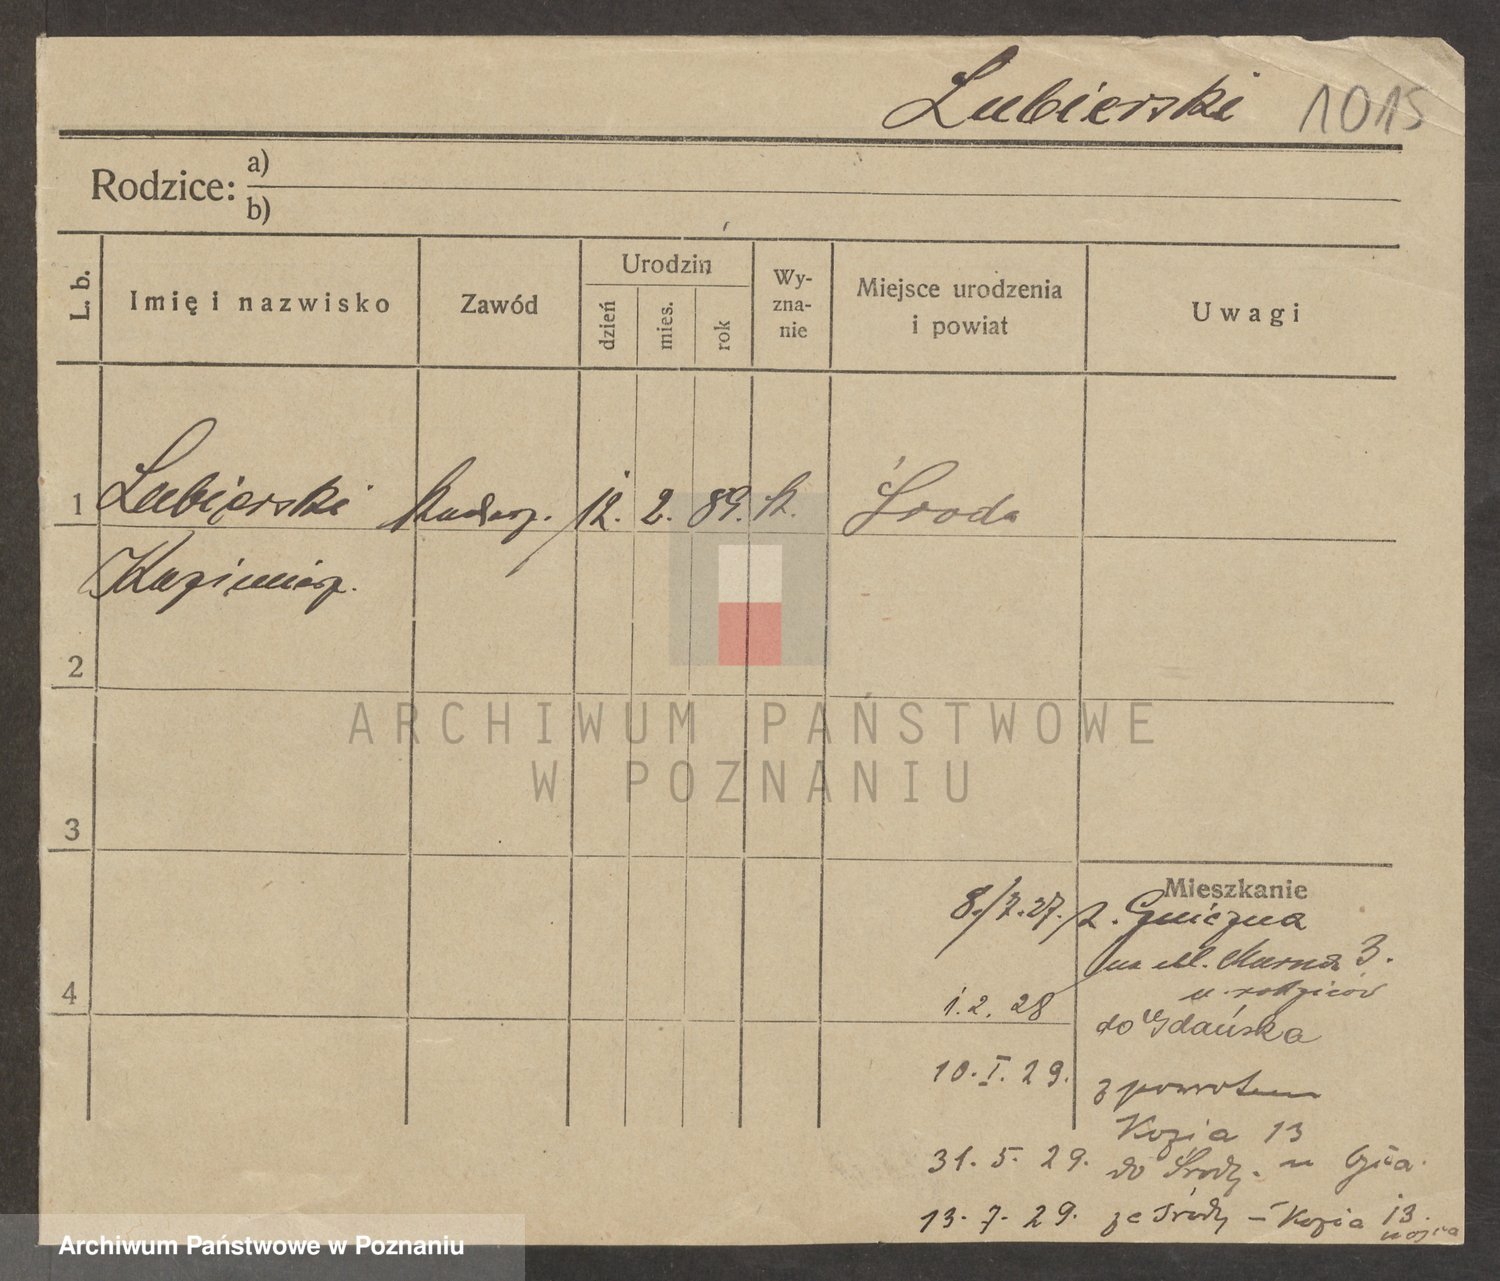 Lubierski 1015
Rodzice: a)
b)
L. b.
Imię i nazwisko
Zawód
Urodzin
dzień
mies.
rok
Wy-
zna-
nie
Miejsce urodzenia
i powiat
Uwagi
1 Lubierski 12. 2. 89. k. Środa
Kazimierz.
2
ARCHIWUM PAŃSTWOWE
W POZNANIU
3
Mieszkanie
8./7.27. z. Gniezna
3.
u rodziców
4
1.2. 28 do Gdańska
10. I. 29. z powrotem
Kozia 13
31. 5. 29. do Środy. u ojca.
13. 7. 29. ze Środy – Kozia 13.
u ojca
Archiwum Państwowe w Poznaniu